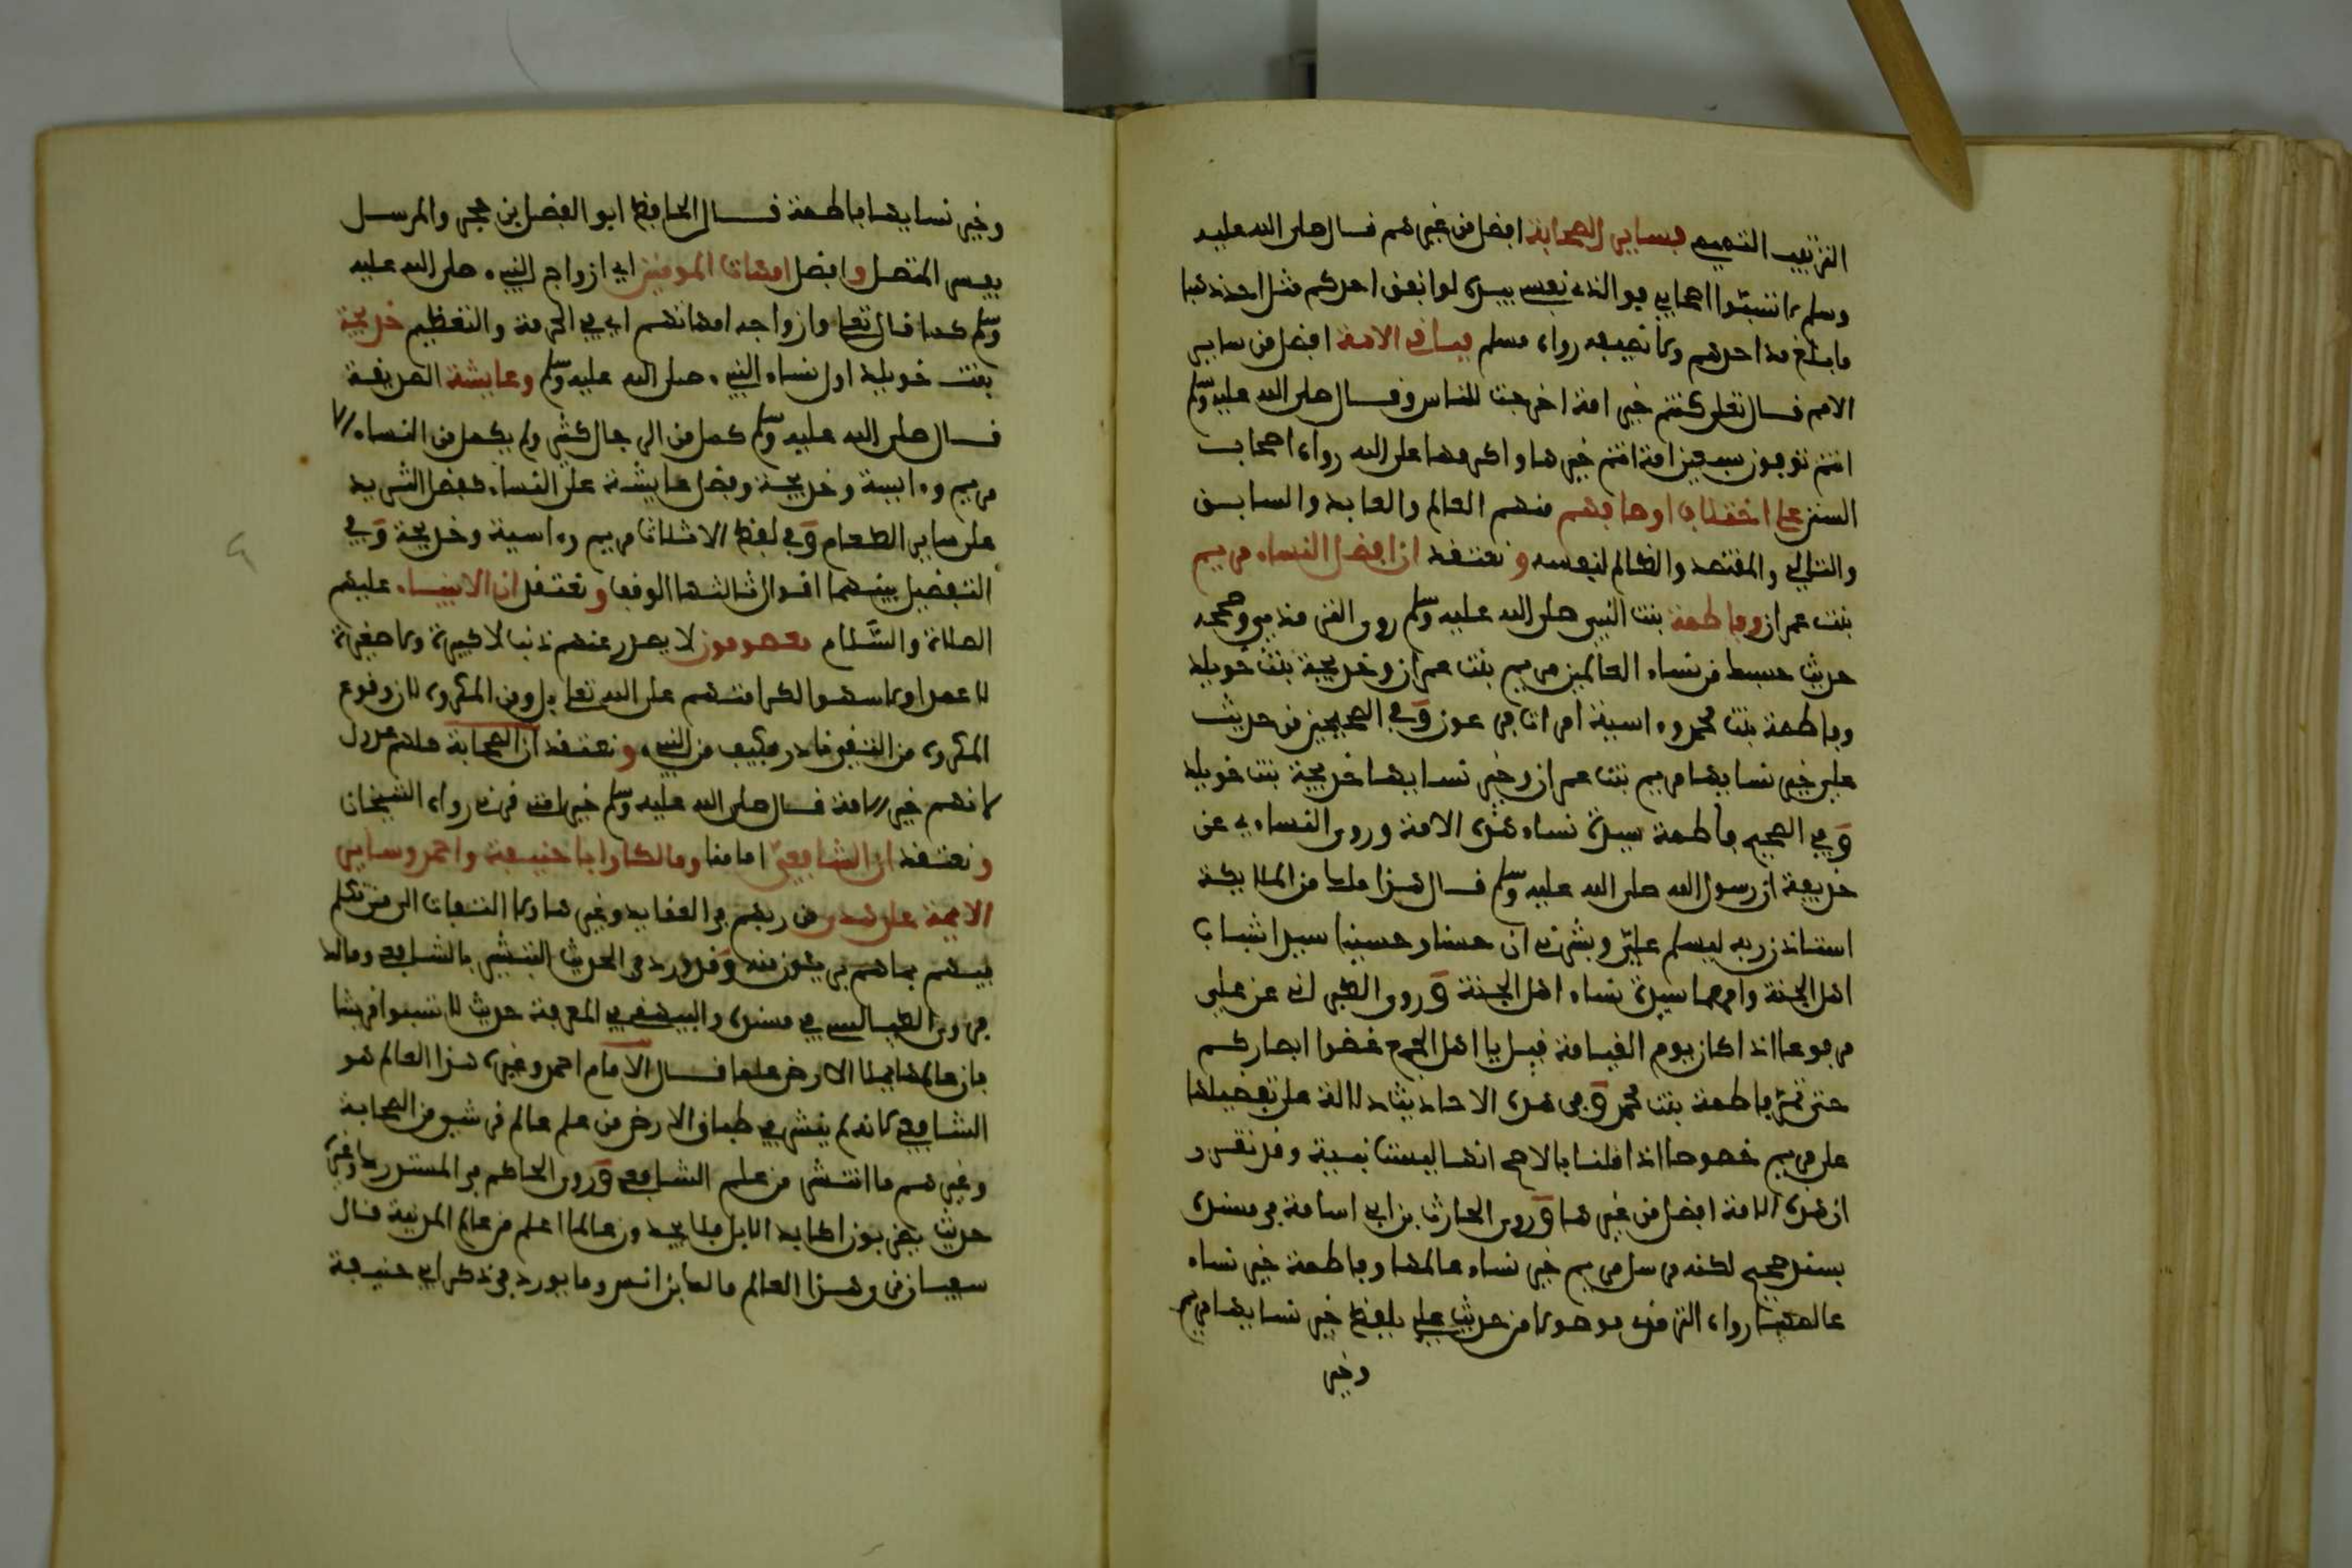 الترتيب التميمي فساير الصحابة افضل من غيرهم قال صلى الله عليه
وسلم لا تسبوا اصحابي فوالذي نفسي بيده لو انفق احدكم مثل احد ذهبا
ما بلغ مد احدهم ولا نصيفه رواه مسلم فباقي الامة افضل من ساير
الامم قال تعلى كنتم خير امة اخرجت للناس وقال صلى الله عليه وسلم
انتم توفون سبعين امة انتم خيرها واكرمها على الله رواه اصحاب
السنن على اختلاف اوصافهم منهم العالم والعابد والسابق
والتالي والمقتصد والظالم لنفسه ونعتقد ان افضل النساء مريم
بنت عمران وفاطمة بنت النبي صلى الله عليه وسلم روى الترمذي وصححه
حديث حسبك من نساء العالمين مريم بنت عمران وخديجة بنت خويلد
وفاطمة بنت محمد وءاسية امرات فرعون وفي الصحيحين من حديث
علي خير نسايها مريم بنت عمران وخير نسايها خديجة بنت خويلد
وفي الصحيح فاطمة سيدة نساء هذه الامة وروى النساءي عن
حذيفة ان رسول الله صلى الله عليه وسلم قال هذا ملك من الملايكة
استاذن ربه ليسلم علي وبشرني ان حسنا وحسينا سيدا شباب
اهل الجنة وامهما سيدة نساء اهل الجنة وروى الطبراني عن علي
مرفوعا اذا كان يوم القيامة قيل يا اهل الجمع غضوا ابصاركم
حتى تمر فاطمة بنت محمد وفي هذه الاحاديث دلالة على تفضيلها
على مريم خصوصا اذا قلنا بالاصح انها ليست نبية وقد تقرر
ان هذه الامة افضل من غيرها وروى الحارث بن ابي اسامة في مسنده
بسند صحيح لكنه مرسل مريم خير نساء عالمها وفاطمة خير نساء
عالمها رواه الترمذي موصولا من حديث علي بلفظ خير نسايها مريم
وخير
وخير نسايها فاطمة قال الحافظ ابو الفضل بن حجر والمرسل
يفسر المتصل وافضل امهات المومنين اي ازواج النبيء صلى الله عليه
وسلم كما قال تعلى وازواجه امهاتهم اي في الحرمة والتعظيم خديجة
بنت خويلد اول نساء النبيء صلى الله عليه وسلم وعايشة الصديقة
قال صلى الله عليه وسلم كمل من الرجال كثير ولم يكمل من النساء الا
مريم وءاسية وخديجة وفضل عايشة على النساء كفضل الثريد
على ساير الطعام وفي لفظ الا ثلاث مريم وءاسية وخديجة وفي
التفضيل بينهما اقوال ثالثها الوقف ونعتقد ان الانبياء عليهم
الصلاة والسلام معصومون لا يصدر عنهم ذنب لا كبيرة ولا صغيرة
لا عمدا ولا سهوا لكرامتهم على الله تعلى بل ومن المكروه لان وقوع
المكروه من التقي نادر فكيف من النبيء ونعتقد ان الصحابة كلهم عدول
لانهم خير الامة قال صلى الله عليه وسلم خير امتي قرني رواه الشيخان
ونعتقد ان الشافعي امامنا ومالكا وابا حنيفة واحمد وساير
الايمة على هدى من ربهم في العقايد وغيرها ولا التفات الى من تكلم
فيهم بما هم بريئون منه وقد ورد في الحديث التبشير بالشافعي ومالك
فروى الطيالسي في مسنده والبيهقي في المعرفة حديث لا تسبوا قريشا
فان عالمها يملا الارض علما قال الامام احمد وغيره هذا العالم هو
الشافعي لانه لم ينتشر في طباق الارض من علم عالم قرشي من الصحابة
وغيرهم ما انتشر من علم الشافعي وروى الحاكم في المستدرك وغيره
حديث يضربون اكباد الابل فلا يجدون عالما اعلم من عالم المدينة قال
سفيان نرى هذا العالم مالك بن انس وما يورد في ذكر ابي حنيفة